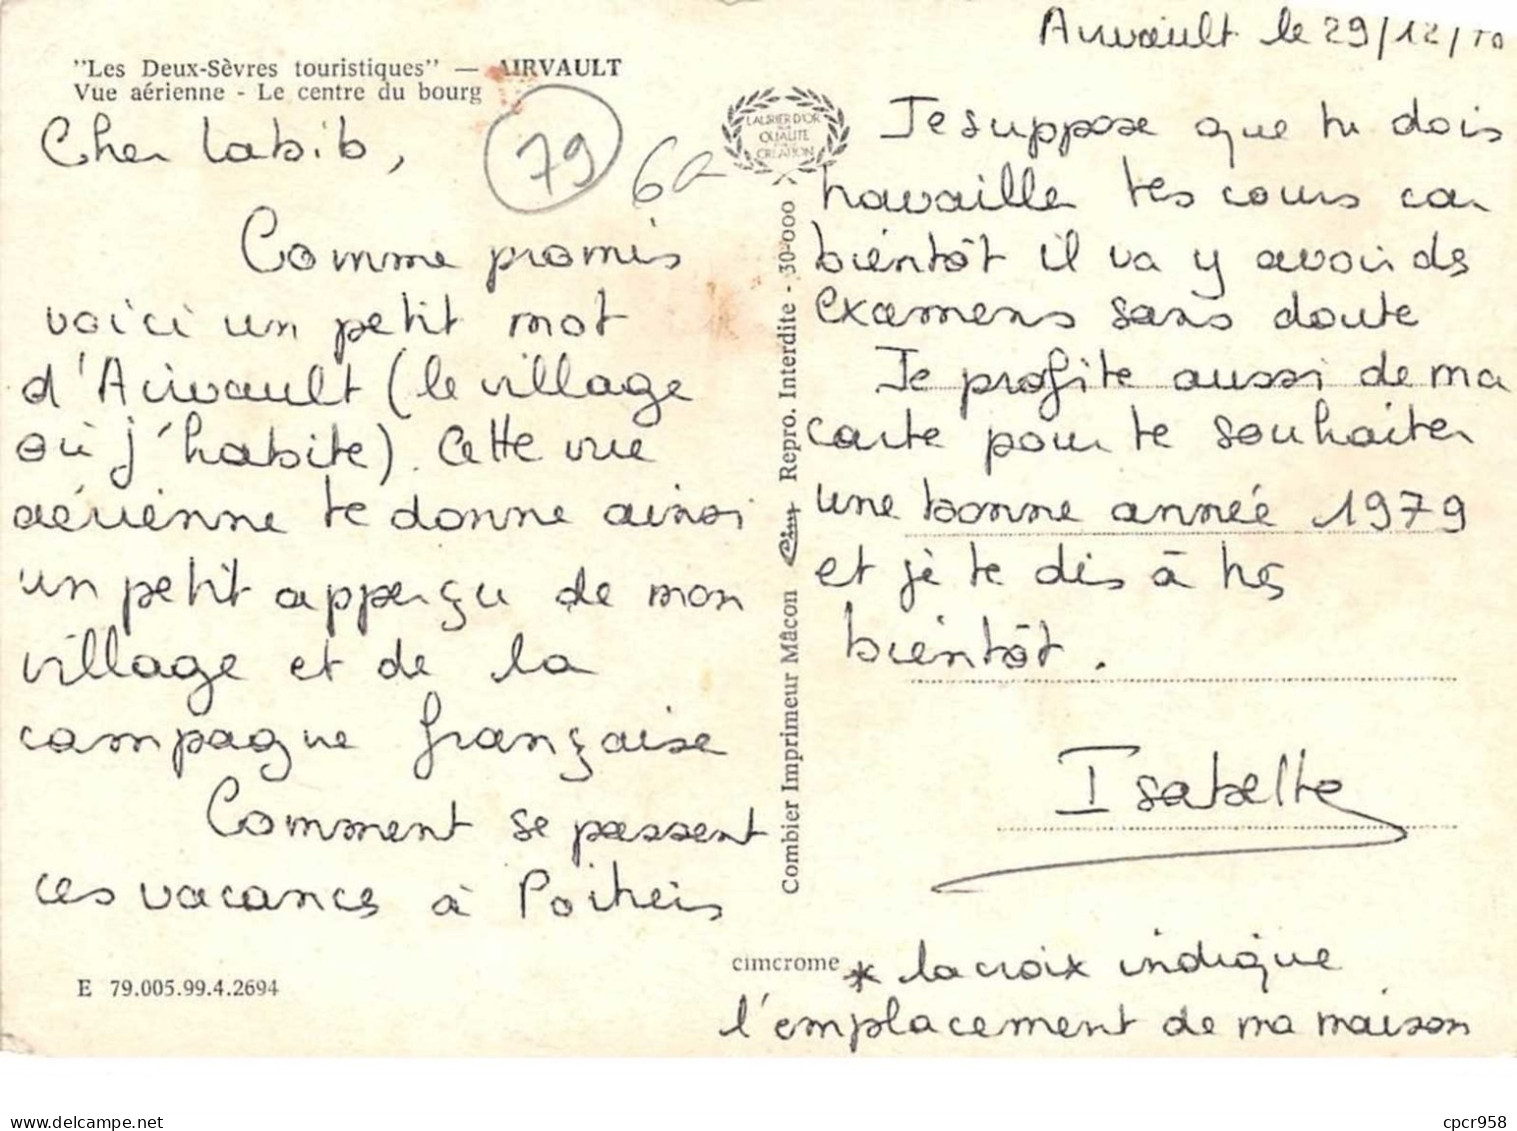 "Les Deux-Sèvres touristiques" — AIRVAULT
Vue aérienne - Le centre du bourg
79
Cher Labib,
Comme promis
voici un petit mot
d'Airvault (le village
où j'habite). Cette vue
aérienne te donne ainsi
un petit apperçu de mon
village et de la
campagne française
Comment se passent
ces vacances à Poitiers
E 79.005.99.4.2694
LAURIER D'OR
QUALITE
CREATION
Combier Imprimeur Mâcon Cim Repro. Interdite - 30-000
Airvault le 29/12/
Je suppose que tu dois
travailler tes cours car
bientôt il va y avoir des
examens sans doute
Je profite aussi de ma
carte pour te souhaiter
une bonne année 1979
et je te dis à très
bientôt.
Isabelle
cimcrome
* la croix indique
l'emplacement de ma maison
cpcr958